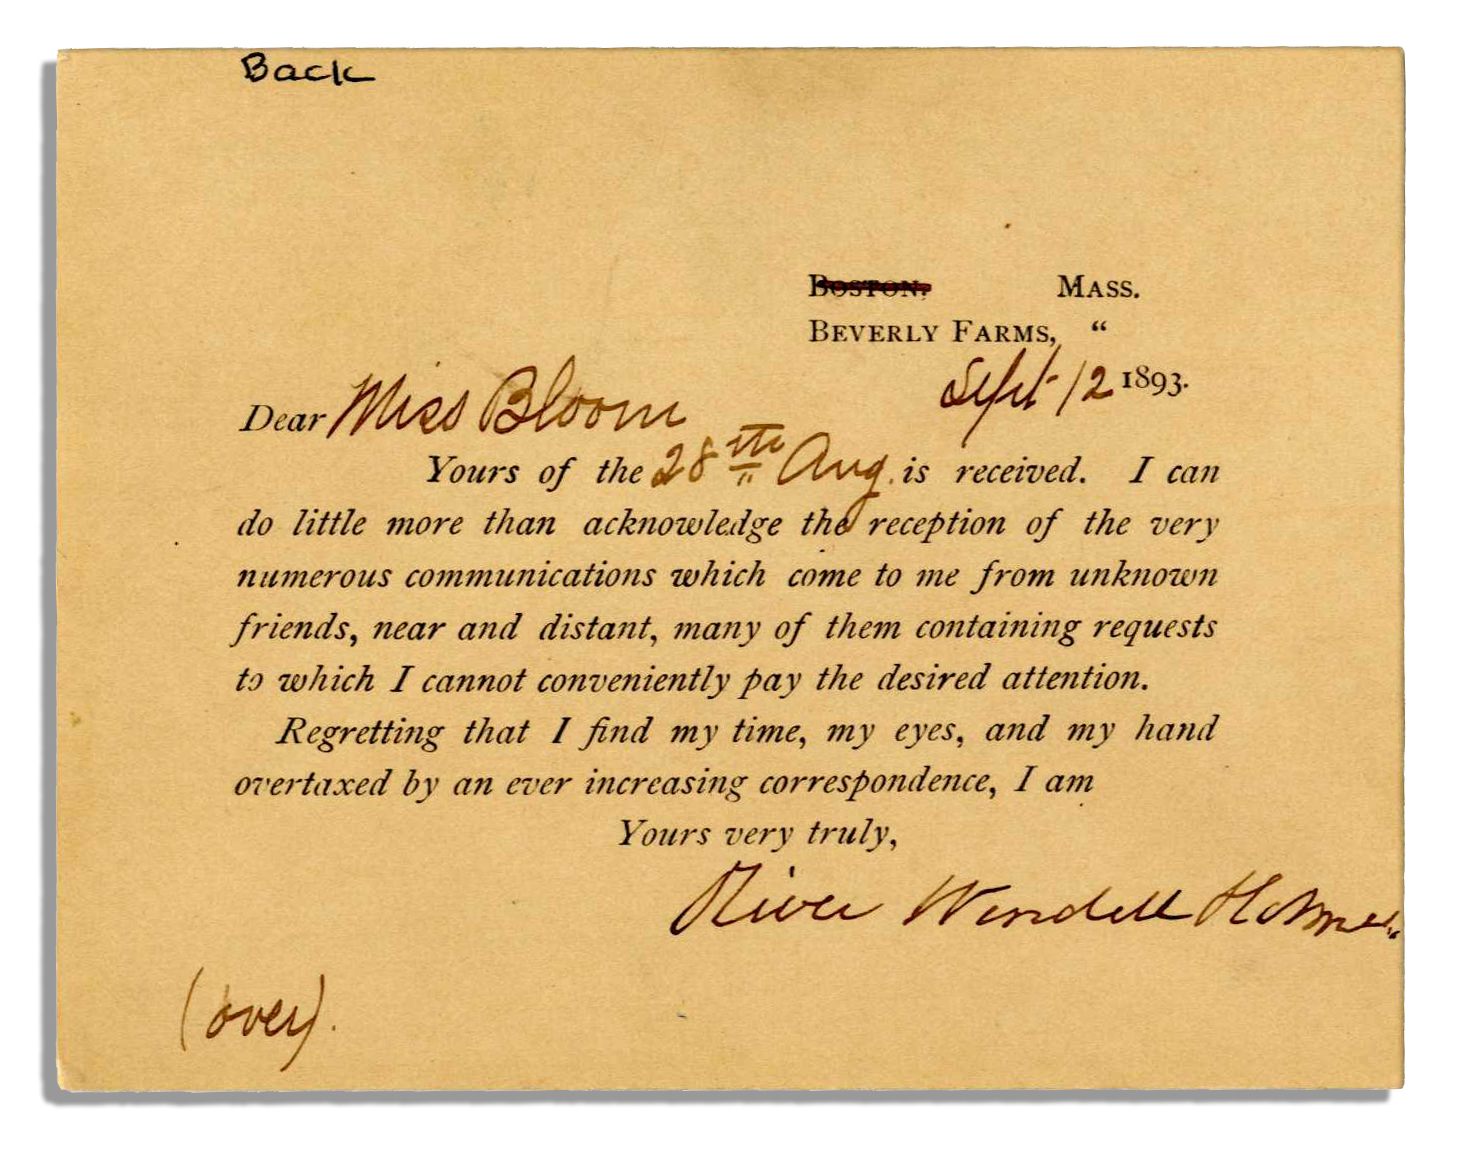 Back
BOSTON. MASS.
BEVERLY FARMS, "
Sept. 12 1893.
Dear Miss Bloom
Yours of the 28th Aug. is received. I can
do little more than acknowledge the reception of the very
numerous communications which come to me from unknown
friends, near and distant, many of them containing requests
to which I cannot conveniently pay the desired attention.
Regretting that I find my time, my eyes, and my hand
overtaxed by an ever increasing correspondence, I am
Yours very truly,
Oliver Wendell Holmes.
(over).